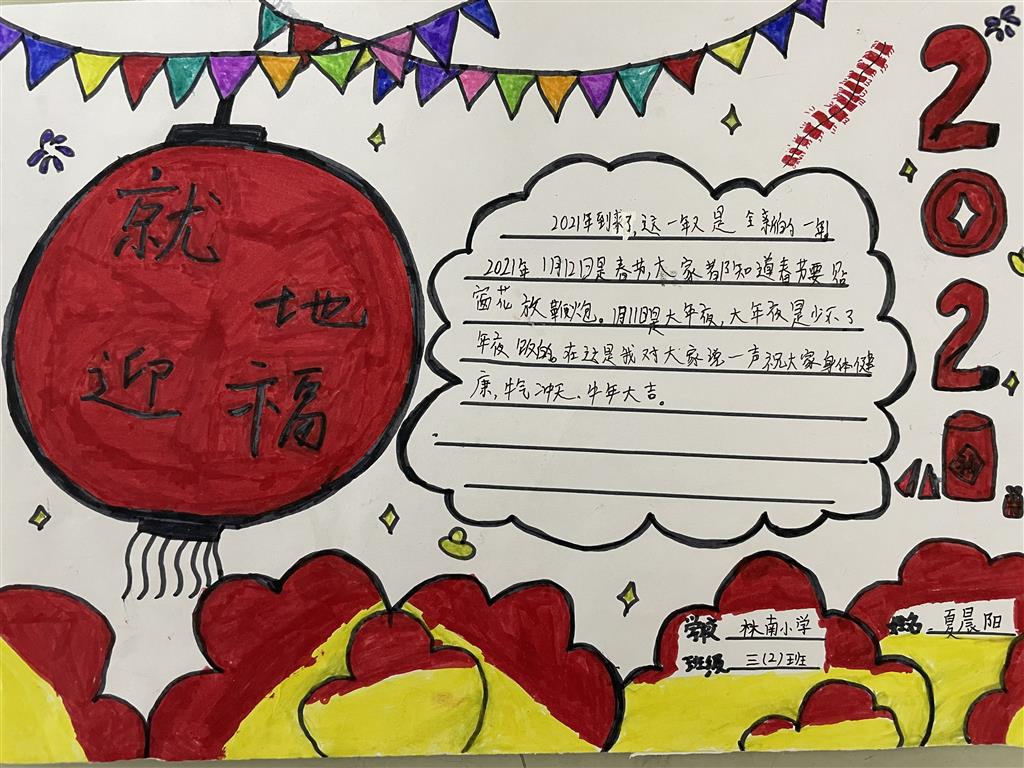 就
地
迎
福
2021年到来了,这一年又是全新的一年
2021年11月12日是春节,大家都知道春节要贴
窗花放鞭炮。1月11日是大年夜,大年夜是少不了
年夜饭的。在这是我对大家说一声祝大家身体健
康,牛气冲天、牛年大吉。
2021
福
学校 株南小学
班级 三(2)班
姓名 夏晨阳